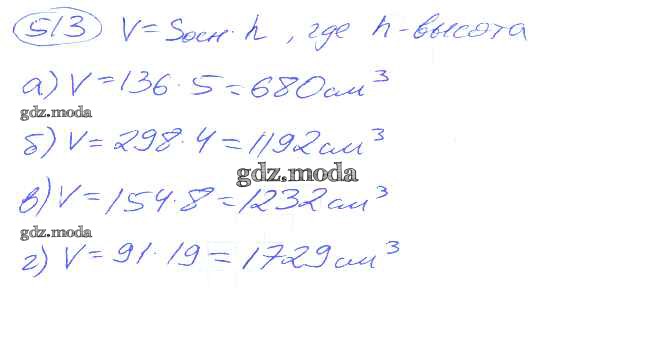 513 V = Sосн · h, где h - высота
а) V = 136 · 5 = 680 см³
gdz.moda
б) V = 298 · 4 = 1192 см³
gdz.moda
в) V = 154 · 8 = 1232 см³
gdz.moda
г) V = 91 · 19 = 1729 см³